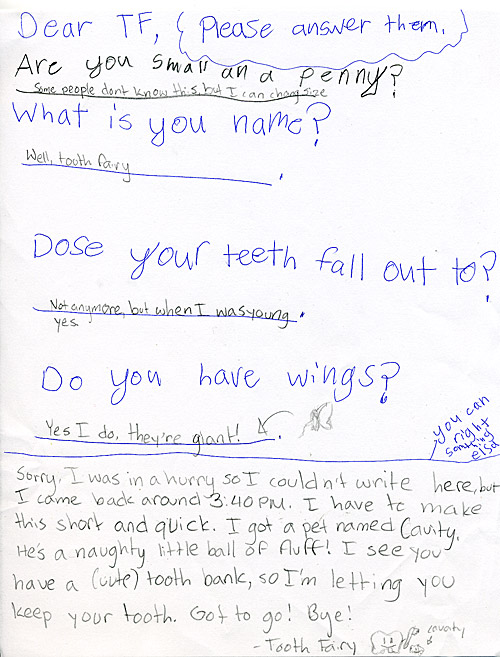 Dear TF, Please answer them.
Are you small an a penny?
Some people dont know this, but I can chang size
What is you name?
Well, tooth fairy
Dose your teeth fall out to?
Not anymore, but when I was young
yes.
Do you have wings?
Yes I do, they're giant!
you can
right
somthing
else
Sorry, I was in a hurry so I couldn't write here, but
I came back around 3:40 PM. I have to make
this short and quick. I got a pet named Cavity.
He's a naughty little ball of fluff! I see you
have a (cute) tooth bank, so I'm letting you
keep your tooth. Got to go! Bye!
- Tooth Fairy
cavaty